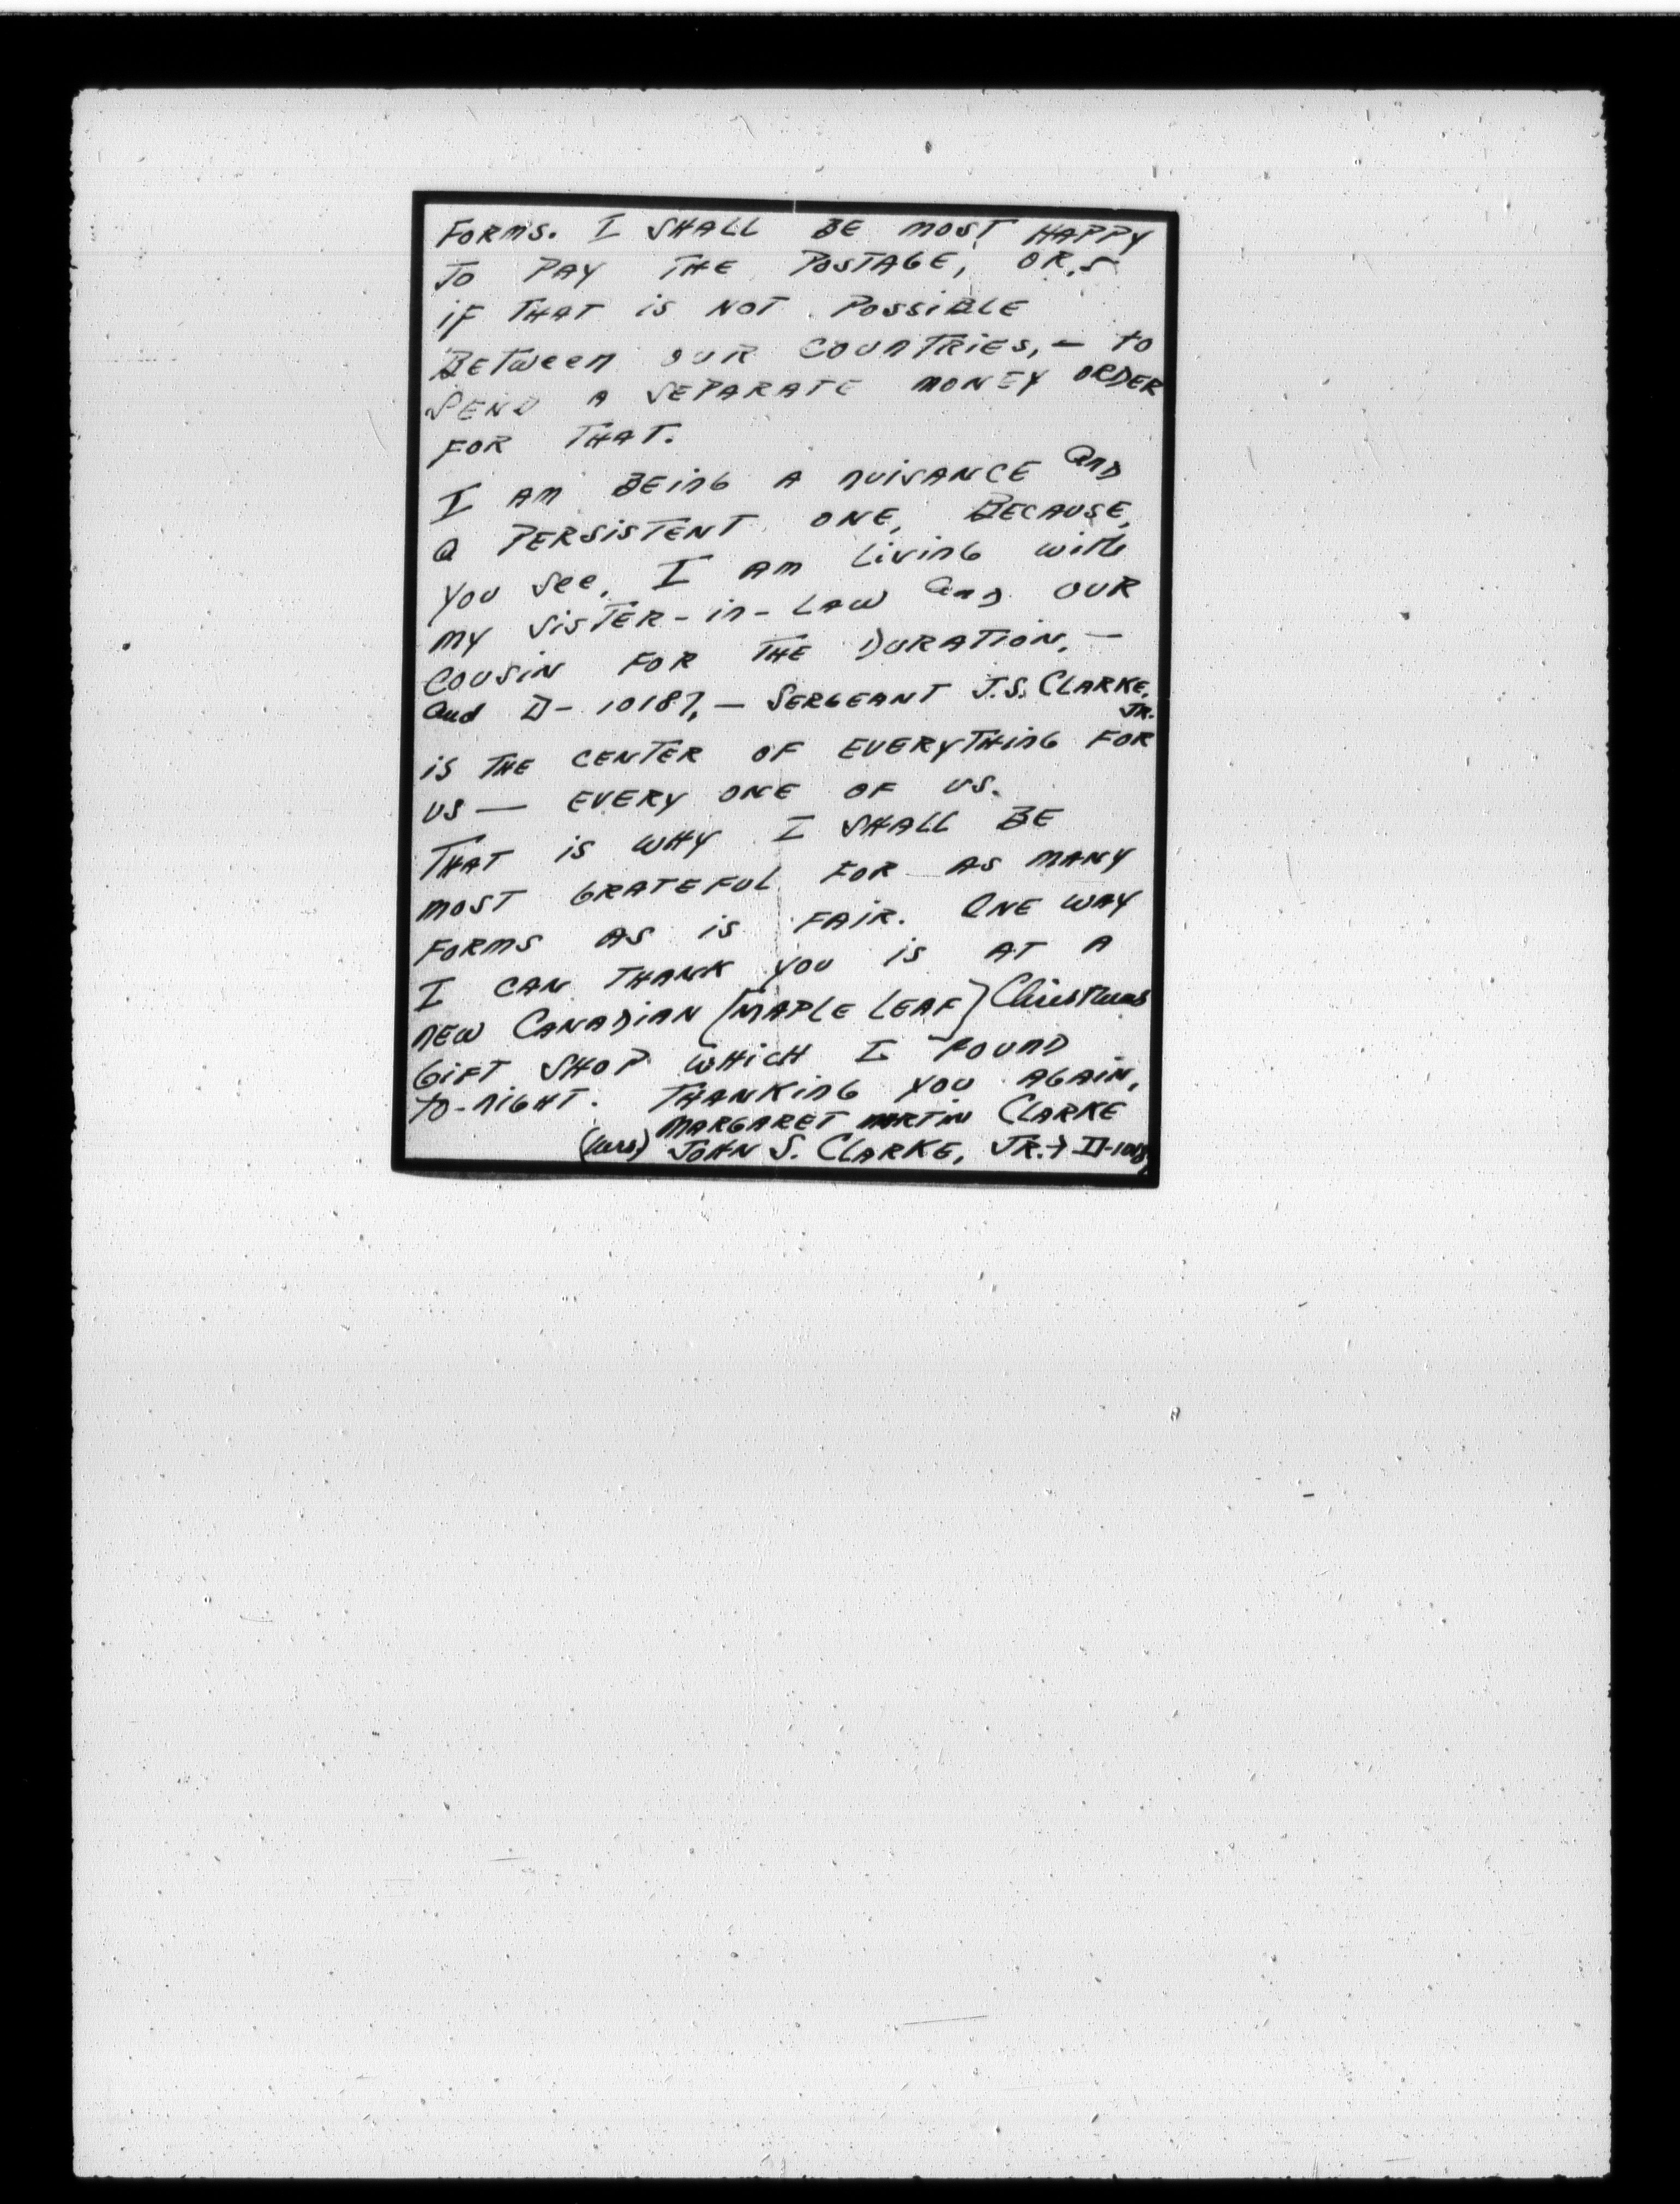 FORMS. I SHALL BE MOST HAPPY
TO PAY THE POSTAGE, OR,
iF THAT is NOT POSSiBLE
BETween OUR COUnTRiEs, — to
SEND A SEPARATE MONEY ORDER
FOR THAT.
I AM BEinG A nUiSANCE And
a PERSiSTENT ONE, BECAUSE,
YOU See, I AM Living with
MY SiSTER-in-LAW and OUR
COUSiN FOR THE DURATiON, —
and D-10187, — SERGEANT J.S. CLARKE, JR.
iS THE CENTER OF EVERYTHinG FOR
US — EVERY ONE OF US.
THAT iS WHY I SHALL BE
MOST GRATEFUL FOR AS MANY
FORMS AS is FAiR. ONE WAY
I CAN THANK YOU iS AT A
NEW CANADiAN [MAPLE LEAF] Christmas
GiFT SHOP WHiCH I FOUND
TO-niGHT. THANKinG YOU AGAiN,
MARGARET MARTiN CLARKE
(Mrs) JOHN S. CLARKE, JR. → D-10187